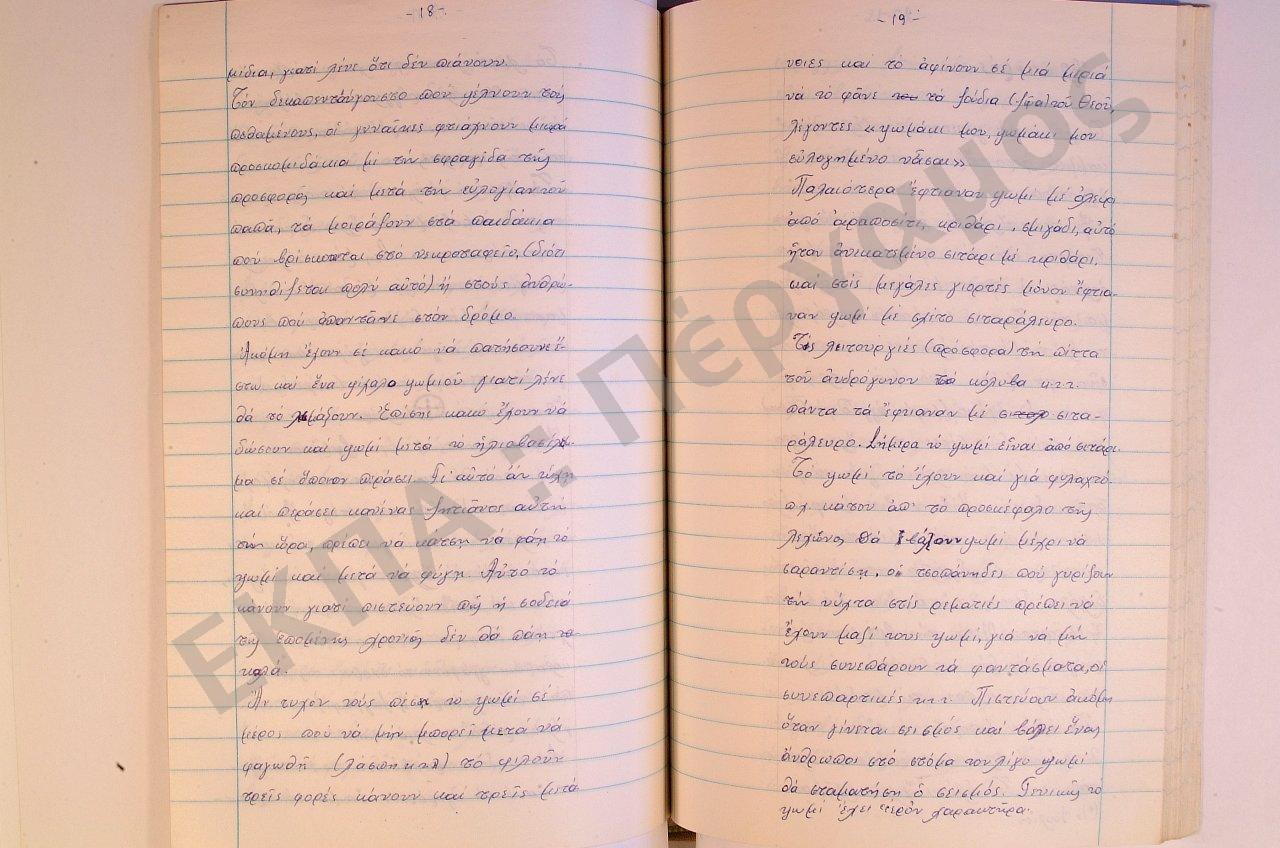 - 18 -
μίδια, γιατί λένε ὅτι δέν πιάνουν.
Τόν δεκαπενταύγουστο πού ψέλνουν τούς
πεθαμένους, οἱ γυναῖκες φτιάχνουν μικρά
προσκομιδάκια μέ τήν σφραγίδα τῆς
προσφορᾶς καί μετά τήν εὐλογίαν τοῦ
παπᾶ, τά μοιράζουν στά παιδάκια
πού βρίσκονται στό νεκροταφεῖο, (διότι
συνηθίζεται πολύ αὐτό) ἤ στούς ἀνθρώ-
πους πού ἀπαντᾶνε στόν δρόμο.
Ἀκόμη ἔχουν σέ κακό νά πατήσουνε ἔ-
στω καί ἕνα ψίχαλο ψωμιοῦ γιατί λένε
θά τό λιμάξουν. Ἐπίσης κακό ἔχουν νά
δώσουν καί ψωμί μετά τό ἡλιοβασίλε-
μα σέ ὅποιον περάσει. Γι' αὐτό ἄν τύχη
καί περάσει κανένας ζητιάνος αὐτή
τήν ὥρα, πρέπει νά κάτση νά φάη τό
ψωμί καί μετά νά φύγη. Αὐτό τό
κάνουν γιατί πιστεύουν πώς ἡ σοδειά
τῆς ἑπομένης χρονιᾶς δέν θά πάη
καλά.
Ἄν τυχόν τούς πέση τό ψωμί σέ
μέρος πού νά μήν μπορεῖ μετά νά
φαγωθῆ (λάσπη κ.λ.π) τό φιλοῦν
τρεῖς φορές κάνουν καί τρεῖς μετά
- 19 -
νοιες καί τό ἀφίνουν σέ μιά μεριά
νά τό φᾶνε το τά ζούδια (ζῶα) τοῦ Θεοῦ,
λέγοντες «ψωμάκι μου, ψωμάκι μου
εὐλογημένο νἆσαι»
Παλαιότερα ἔφτιαναν ψωμί μέ ἀλεύρι
ἀπό ἀραποσίτι, κριθάρι, σμιγάδι, αὐτό
ἦταν ἀνακατεμένο σιτάρι μέ κριθάρι.
καί στίς μεγάλες γιορτές μόνον ἔφτια-
ναν ψωμί μέ σκέτο σιταράλευρο.
Τίς λειτουργιές (πρόσφορα) τήν πίττα
τοῦ ἀνδρόγυνου τά κόλυβα κ.τ.τ.
πάντα τά ἔφτιαναν μέ σιταλ σιτα-
ράλευρο. Σήμερα τό ψωμί εἶναι ἀπό σιτάρι.
Τό ψωμί τό ἔχουν καί γιά φυλαχτό
π.χ. κάτου ἀπ' τό προσκέφαλο τῆς
λεχώνας θά βάζουν ψωμί μέχρι νά
σαραντίση, οἱ τσοπάνηδες πού γυρίζουν
τήν νύχτα στίς ρεματιές πρέπει νά
ἔχουν μαζί τους ψωμί, γιά νά μή
τούς συνεπάρουν τά φαντάσματα, οἱ
συνεπαρτικές κ.τ.τ. Πιστεύουν ἀκόμη
ὅταν γίνεται σεισμός καί βάλει ἕνας
ἄνθρωπος στό στόμα του λίγο ψωμί
θά σταματήση ὁ σεισμός. Γενικῶς τό
ψωμί ἔχει ἱερόν χαρακτῆρα.
ΕΚΠΑ .:. Πέργαμος